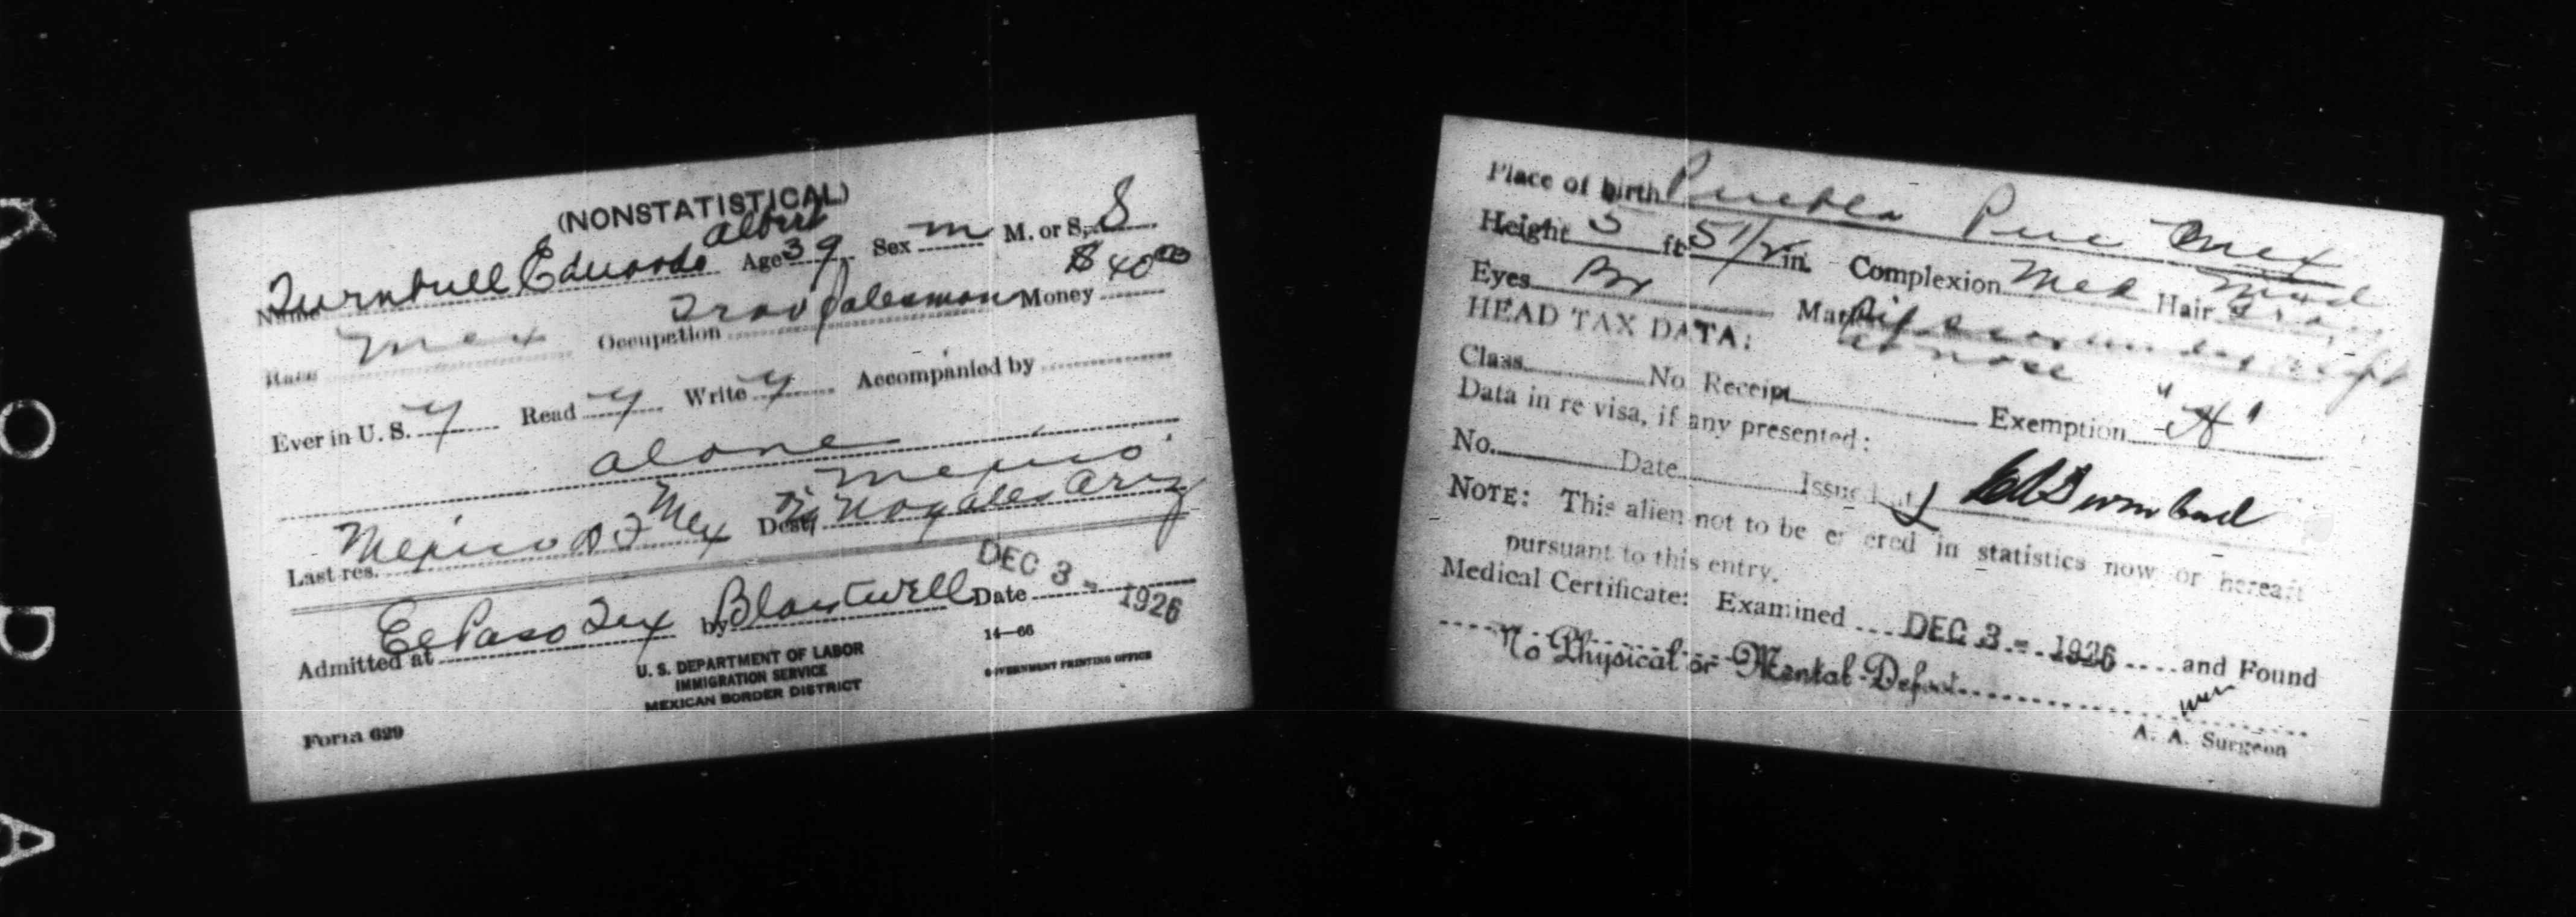 (NONSTATISTICAL)
Albert
Name Turnbull Eduardo Age 39 Sex m M. or S. S
Race Mex Occupation Trav Salesman Money $40.00
Ever in U. S. y Read y Write y Accompanied by
alone
Mexico
Last res. Mexico D F Mex Dest. Nogales Ariz
Admitted at El Paso Tex by Date DEC 3 - 1926
U. S. DEPARTMENT OF LABOR
IMMIGRATION SERVICE
MEXICAN BORDER DISTRICT
14—66
GOVERNMENT PRINTING OFFICE
Form 629
Place of birth Puebla Pue Mex
Height 5 ft 5 1/2 in. Complexion Med Hair
Eyes Br Marks scar under right
nose
HEAD TAX DATA:
Class No Receipt Exemption "A"
Data in re visa, if any presented:
No. Date Issued at
NOTE: This alien not to be entered in statistics now or hereaft
pursuant to this entry.
Medical Certificate: Examined DEC 3 - 1926 and Found
No Physical or Mental Defect
A. A. Surgeon